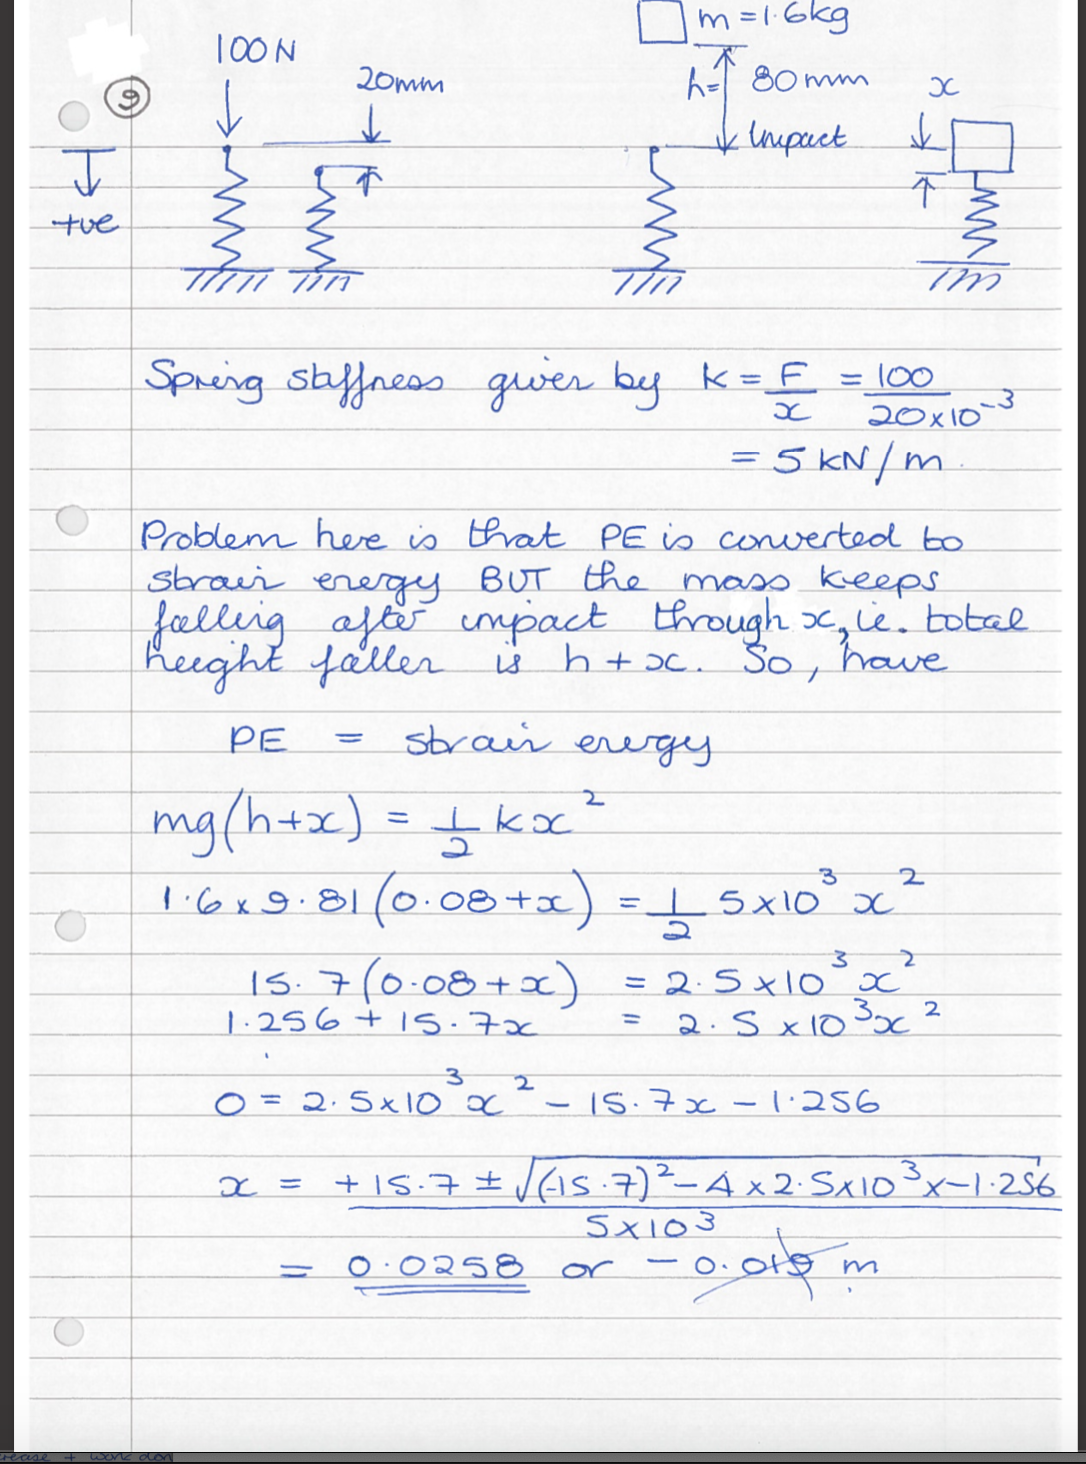 m = 1.6kg
100N
20mm
h= 80mm
x
9
Impact
+ve
Spring stiffness given by k = F/x = 100/20x10^-3
= 5 kN/m.
Problem here is that PE is converted to
strain energy BUT the mass keeps
falling after impact through x, i.e. total
height fallen is h + x. So, have
PE = strain energy
mg(h+x) = 1/2 kx^2
1.6 x 9.81(0.08+x) = 1/2 5x10^3 x^2
15.7(0.08+x) = 2.5x10^3 x^2
1.256 + 15.7x = 2.5 x 10^3 x^2
0 = 2.5x10^3 x^2 - 15.7x - 1.256
x = +15.7 ± √((-15.7)^2 - 4 x 2.5x10^3 x -1.256) / 5x10^3
= 0.0258 or - 0.019 m